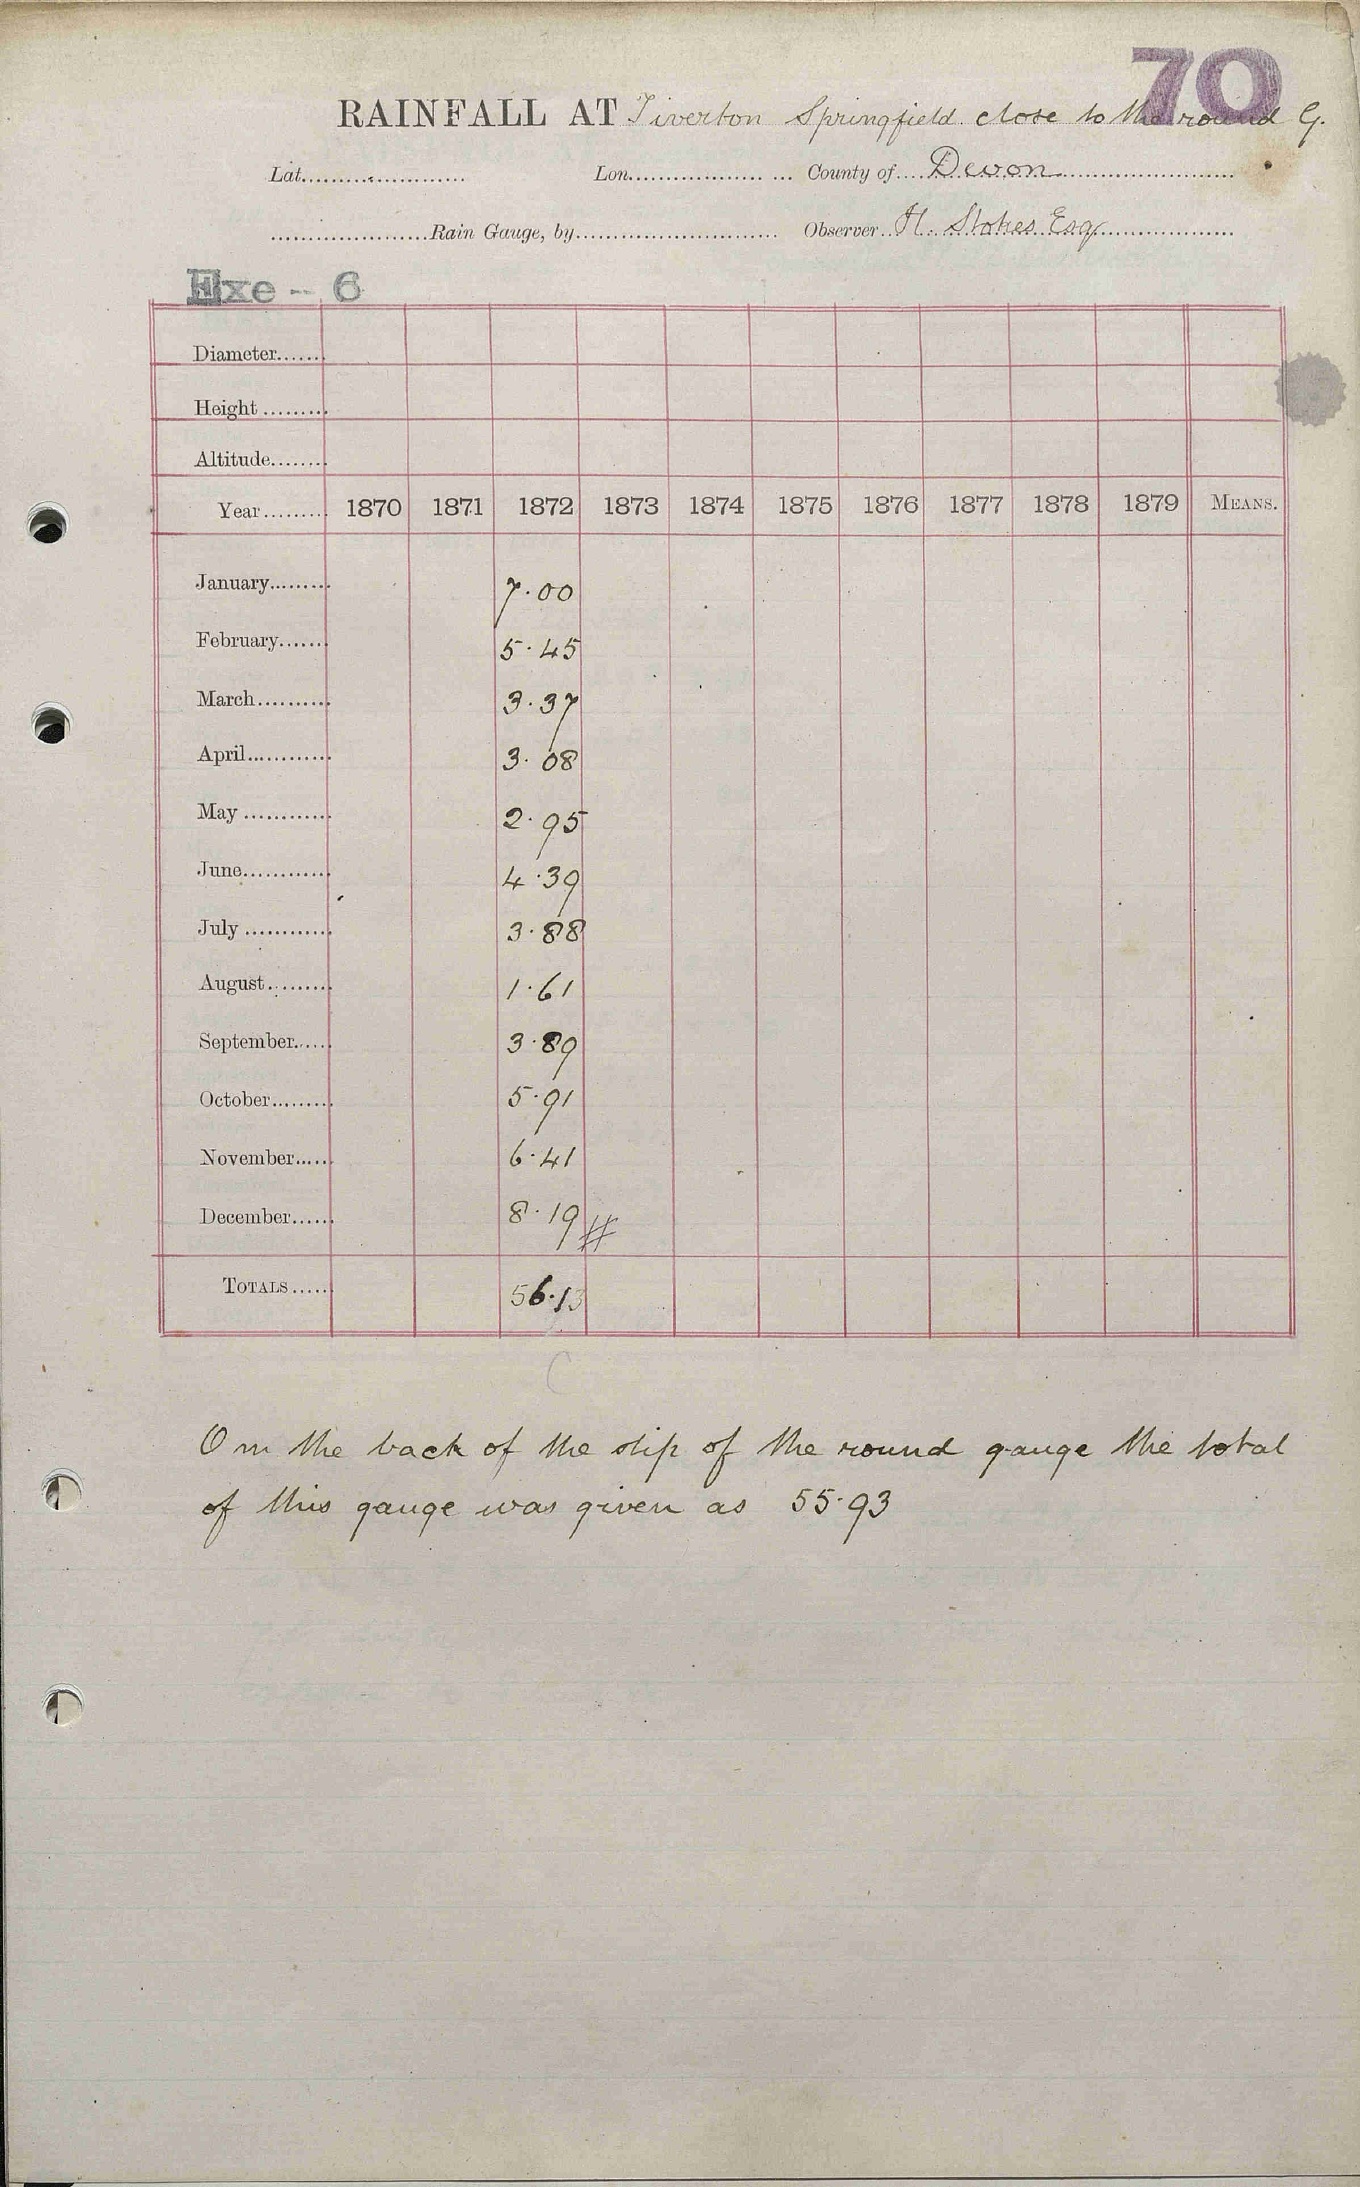 70
RAINFALL AT Tiverton Springfield close to the round G.
Lat. Lon. County of Devon
Rain Gauge, by Observer H. Stokes Esq
Exe - 6
Diameter
Height
Altitude
Year 1870 1871 1872 1873 1874 1875 1876 1877 1878 1879 MEANS.
January 7.00
February 5.45
March 3.37
April 3.08
May 2.95
June 4.39
July 3.88
August 1.61
September 3.89
October 5.91
November 6.41
December 8.19 #
TOTALS 56.13
C
On the back of the slip of the round gauge the total
of this gauge was given as 55.93